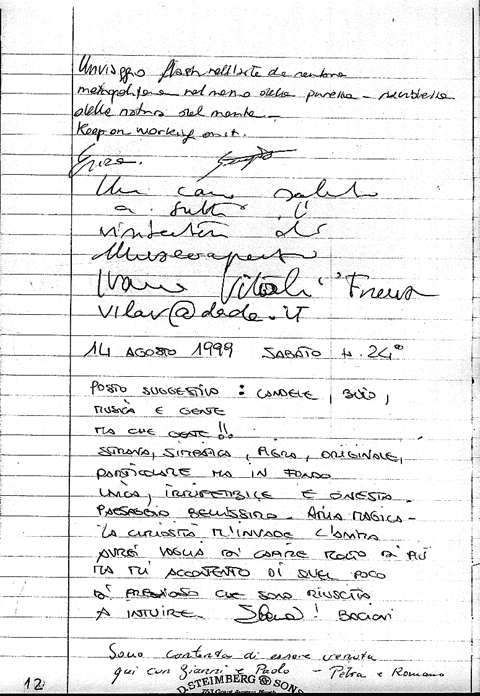 Un viaggio flash nell'arte da
metropolitana nel nella purezza -
della natura del monte -
Keep on working on it.
Un caro saluto
a tutti i
visitatori di
Museoaperto
Ivano Vitali Firenze
vilav@dada.it
14 AGOSTO 1999 SABATO H. 24°
POSTO SUGGESTIVO : CANDELE, BUIO,
MUSICA E GENTE
MA CHE GENTE!!
STRANA, SIMPATICA, ALLEGRA, ORIGINALE,
PARTICOLARE MA IN FONDO
UNICA, IRRIPETIBILE E ONESTA.
PAESAGGIO BELLISSIMO - ARIA MAGICA -
LA CURIOSITÀ M'INVADE L'ANIMA
AVREI VOGLIA DI CAPIRE MOLTO DI PIÙ
MA MI ACCONTENTO DI QUEL POCO
DI PREZIOSO CHE SONO RIUSCITA
A INTUIRE. ! BACIONI
Sono contenta di essere venuta
qui con Gianni e Paolo - Petra e Romano
12
D. STEIMBERG & SONS